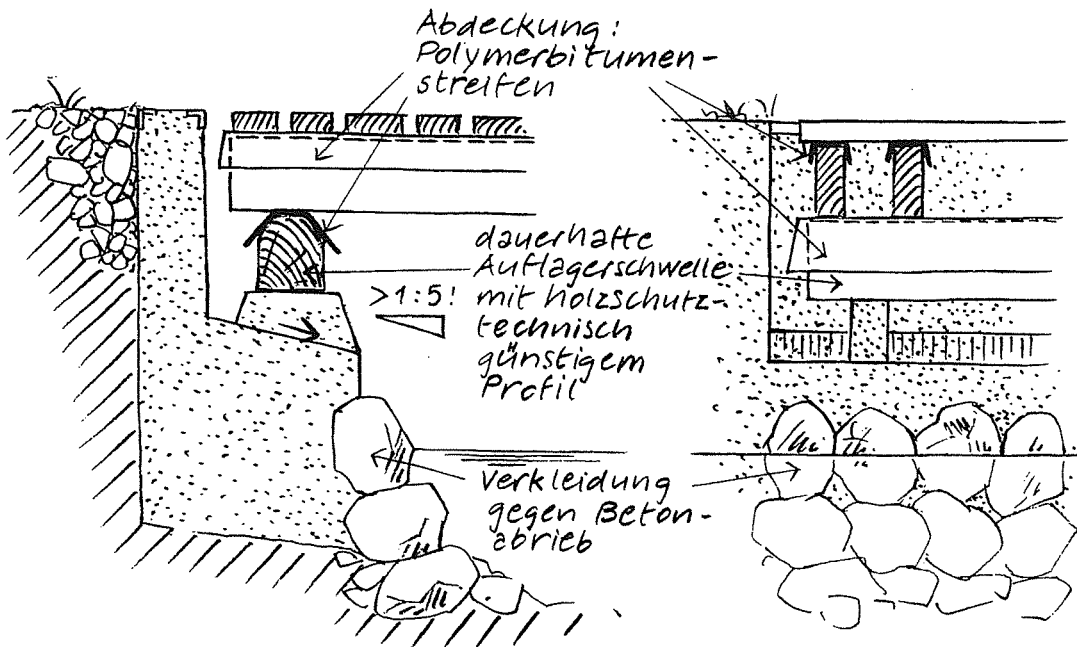 Abdeckung:
Polymerbitumen-
streifen
dauerhafte
Auflagerschwelle
mit holzschutz-
technisch
günstigem
Profil
>1:5!
Verkleidung
gegen Beton-
abrieb